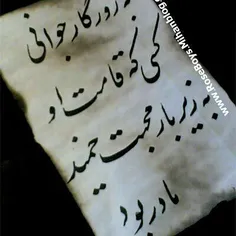 به روزگار جوانی
کمی که قامت او
به زیر بار محبت خمید
مادر بود
www.RoseBoys.Mihanblog